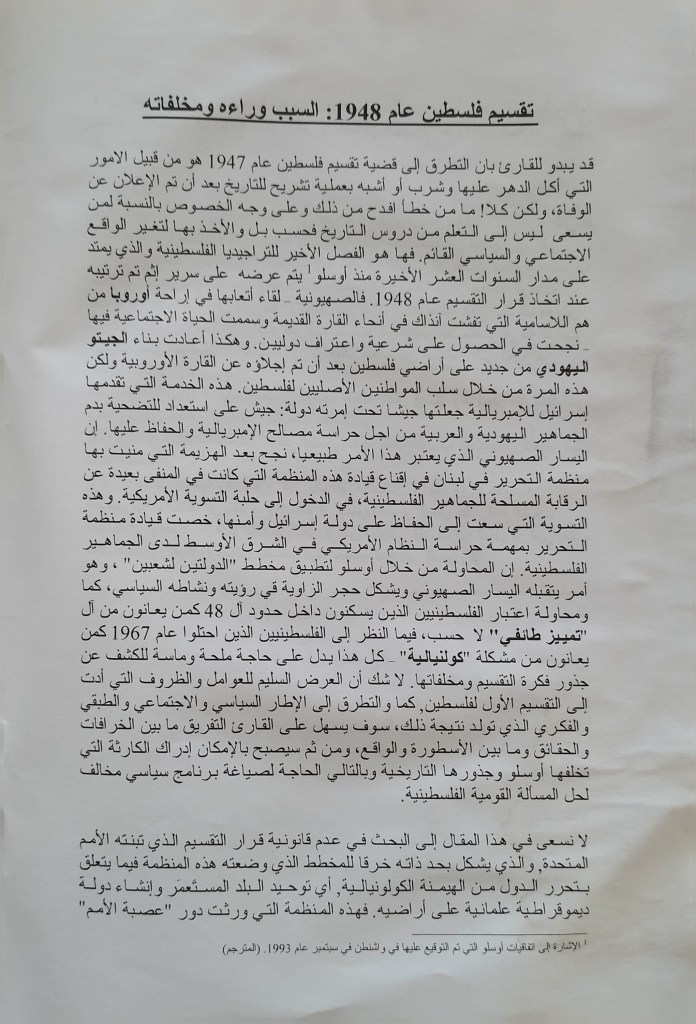 تقسيم فلسطين عام 1948: السبب وراءه ومخلفاته
قد يبدو للقارئ بان التطرق إلى قضية تقسيم فلسطين عام 1947 هو من قبيل الامور
التي أكل الدهر عليها وشرب أو أشبه بعملية تشريح للتاريخ بعد أن تم الإعلان عن
الوفاة، ولكن كلا! ما من خطأ افدح من ذلك وعلى وجه الخصوص بالنسبة لمن
يسعى ليس إلى التعلم من دروس التاريخ فحسب بل والأخذ بها لتغير الواقع
الاجتماعي والسياسي القائم. فها هو الفصل الأخير للتراجيديا الفلسطينية والذي يمتد
على مدار السنوات العشر الأخيرة منذ أوسلو1 يتم عرضه على سرير إثم تم ترتيبه
عند اتخاذ قرار التقسيم عام 1948. فالصهيونية - لقاء أتعابها في إراحة أوروبا من
هم اللاسامية التي تفشت آنذاك في أنحاء القارة القديمة وسممت الحياة الاجتماعية فيها
- نجحت في الحصول على شرعية واعتراف دوليين. وهكذا أعادت بناء الجيتو
اليهودي من جديد على أراضي فلسطين بعد أن تم إجلاؤه عن القارة الأوروبية ولكن
هذه المرة من خلال سلب المواطنين الأصليين لفلسطين. هذه الخدمة التي تقدمها
إسرائيل للإمبريالية جعلتها جيشا تحت إمرته دولة: جيش على استعداد للتضحية بدم
الجماهير اليهودية والعربية من اجل حراسة مصالح الإمبريالية والحفاظ عليها. إن
اليسار الصهيوني الذي يعتبر هذا الأمر طبيعيا، نجح بعد الهزيمة التي منيت بها
منظمة التحرير في لبنان في إقناع قيادة هذه المنظمة التي كانت في المنفى بعيدة عن
الرقابة المسلحة للجماهير الفلسطينية، في الدخول إلى حلبة التسوية الأمريكية. وهذه
التسوية التي سعت إلى الحفاظ على دولة إسرائيل وأمنها، خصت قيادة منظمة
التحرير بمهمة حراسة النظام الأمريكي في الشرق الأوسط لدى الجماهير
الفلسطينية. إن المحاولة من خلال أوسلو لتطبيق مخطط "الدولتين لشعبين" ، وهو
أمر يتقبله اليسار الصهيوني ويشكل حجر الزاوية في رؤيته ونشاطه السياسي، كما
ومحاولة اعتبار الفلسطينيين الذين يسكنون داخل حدود آل 48 كمن يعانون من آل
"تمييز طائفي" لا حسب، فيما النظر إلى الفلسطينيين الذين احتلوا عام 1967 كمن
يعانون من مشكلة "كولنيالية" - كل هذا يدل على حاجة ملحة وماسة للكشف عن
جذور فكرة التقسيم ومخلفاتها. لا شك أن العرض السليم للعوامل والظروف التي أدت
إلى التقسيم الأول لفلسطين, كما والتطرق إلى الإطار السياسي والاجتماعي والطبقي
والفكري الذي تولد نتيجة ذلك، سوف يسهل على القارئ التفريق ما بين الخرافات
والحقائق وما بين الأسطورة والواقع، ومن ثم سيصبح بالإمكان إدراك الكارثة التي
تخلفها أوسلو وجذورها التاريخية وبالتالي الحاجة لصياغة برنامج سياسي مخالف
لحل المسألة القومية الفلسطينية.
لا نسعى في هذا المقال إلى البحث في عدم قانونية قرار التقسيم الذي تبنته الأمم
المتحدة, والذي يشكل بحد ذاته خرقا للمخطط الذي وضعته هذه المنظمة فيما يتعلق
بتحرر الدول من الهيمنة الكولونيالية, أي توحيد البلد المستعمَر وإنشاء دولة
ديموقراطية علمانية على أراضيه. فهذه المنظمة التي ورثت دور "عصبة الأمم"
1 الإشارة إلى اتفاقيات أوسلو التي تم التوقيع عليها في واشنطن في سبتمبر عام 1993. (المترجم)